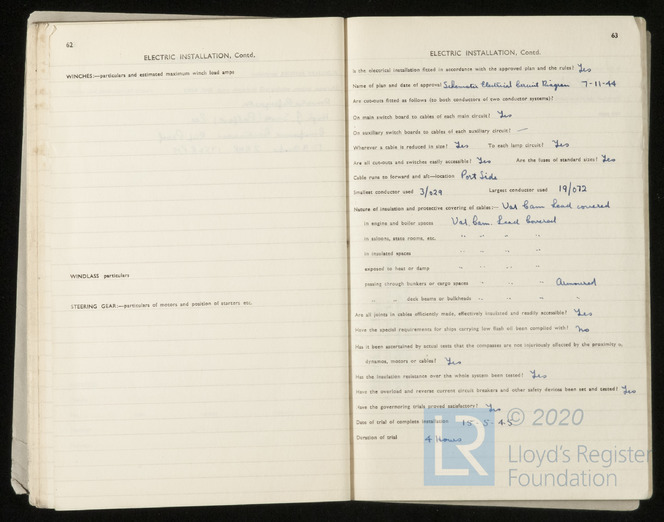 62
ELECTRIC INSTALLATION, Contd.
WINCHES:—particulars and estimated maximum winch load amps
WINDLASS particulars
STEERING GEAR:—particulars of motors and position of starters etc.
63
ELECTRIC INSTALLATION, Contd.
Is the electrical installation fitted in accordance with the approved plan and the rules? Yes
Name of plan and date of approval Schematic Electrical Circuit Diagram 7-11-44
Are cut-outs fitted as follows (to both conductors of two conductor systems)?
On main switch board to cables of each main circuit? Yes
On auxiliary switch boards to cables of each auxiliary circuit? —
Wherever a cable is reduced in size? Yes To each lamp circuit? Yes
Are all cut-outs and switches easily accessible? Yes Are the fuses of standard sizes? Yes
Cable runs to forward and aft—location Port Side
Smallest conductor used 3/029 Largest conductor used 19/072
Nature of insulation and protective covering of cables:— Var Cam Lead covered
in engine and boiler spaces Var. Cam. Lead Covered
in saloons, state rooms, etc. " " " "
in insulated spaces " " " "
exposed to heat or damp " " " "
passing through bunkers or cargo spaces " " " Armoured
" " deck beams or bulkheads " " " "
Are all joints in cables efficiently made, effectively insulated and readily accessible? Yes
Have the special requirements for ships carrying low flash oil been complied with? No
Has it been ascertained by actual tests that the compasses are not injuriously affected by the proximity of
dynamos, motors or cables? Yes
Has the insulation resistance over the whole system been tested? Yes
Have the overload and reverse current circuit breakers and other safety devices been set and tested? Yes
Have the governoring trials proved satisfactory? Yes
Date of trial of complete installation 15-5-45
Duration of trial 4 Hours
LR
© 2020
Lloyd's Register
Foundation